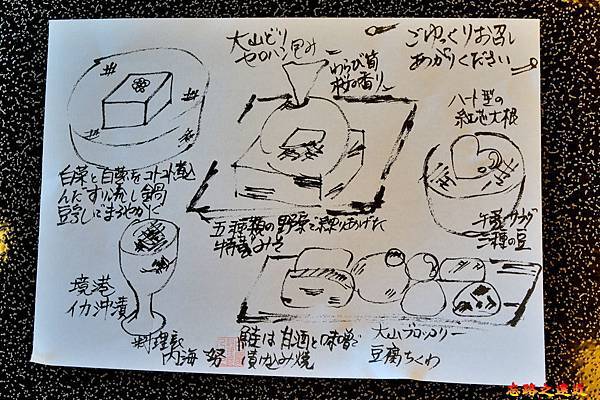 大山どり
セロハン包み
わらび筍
桜の香り
ごゆっくりお召し
あがりください
ハート型の
紅芯大根
白菜と白菜をコトコト煮込
んだすり流し鍋
豆乳してまろやかに
五種類の野菜で練りあげた
特養みそ
牛蒡サラダ
三種の豆
境港
イカ沖漬
料理長
内海 努
鮭は甘酒と味噌で
漬込み焼
大山ブロッコリー
豆腐ちくわ